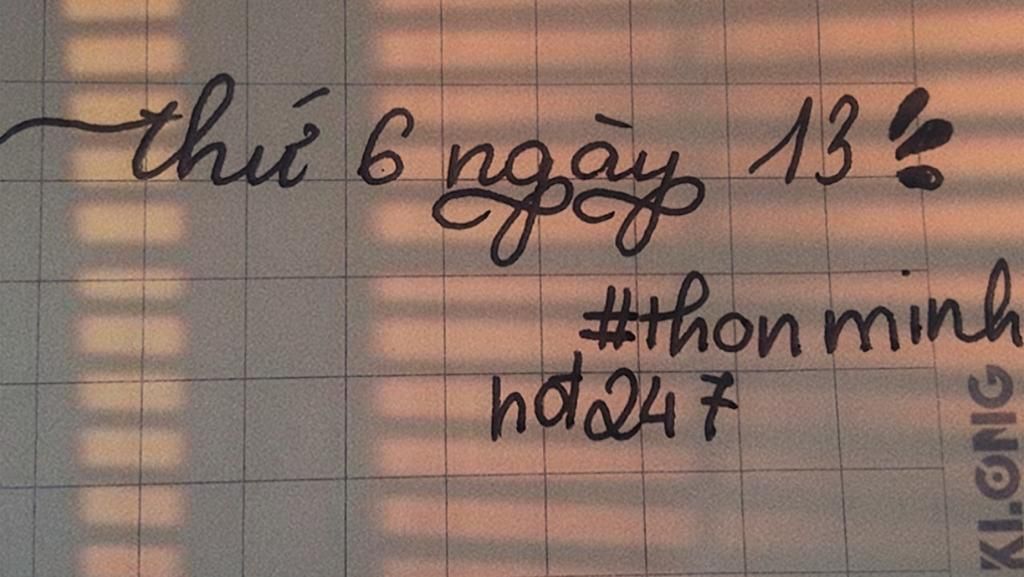 thứ 6 ngày 13!!
#thon minh
hđ247
KLONG